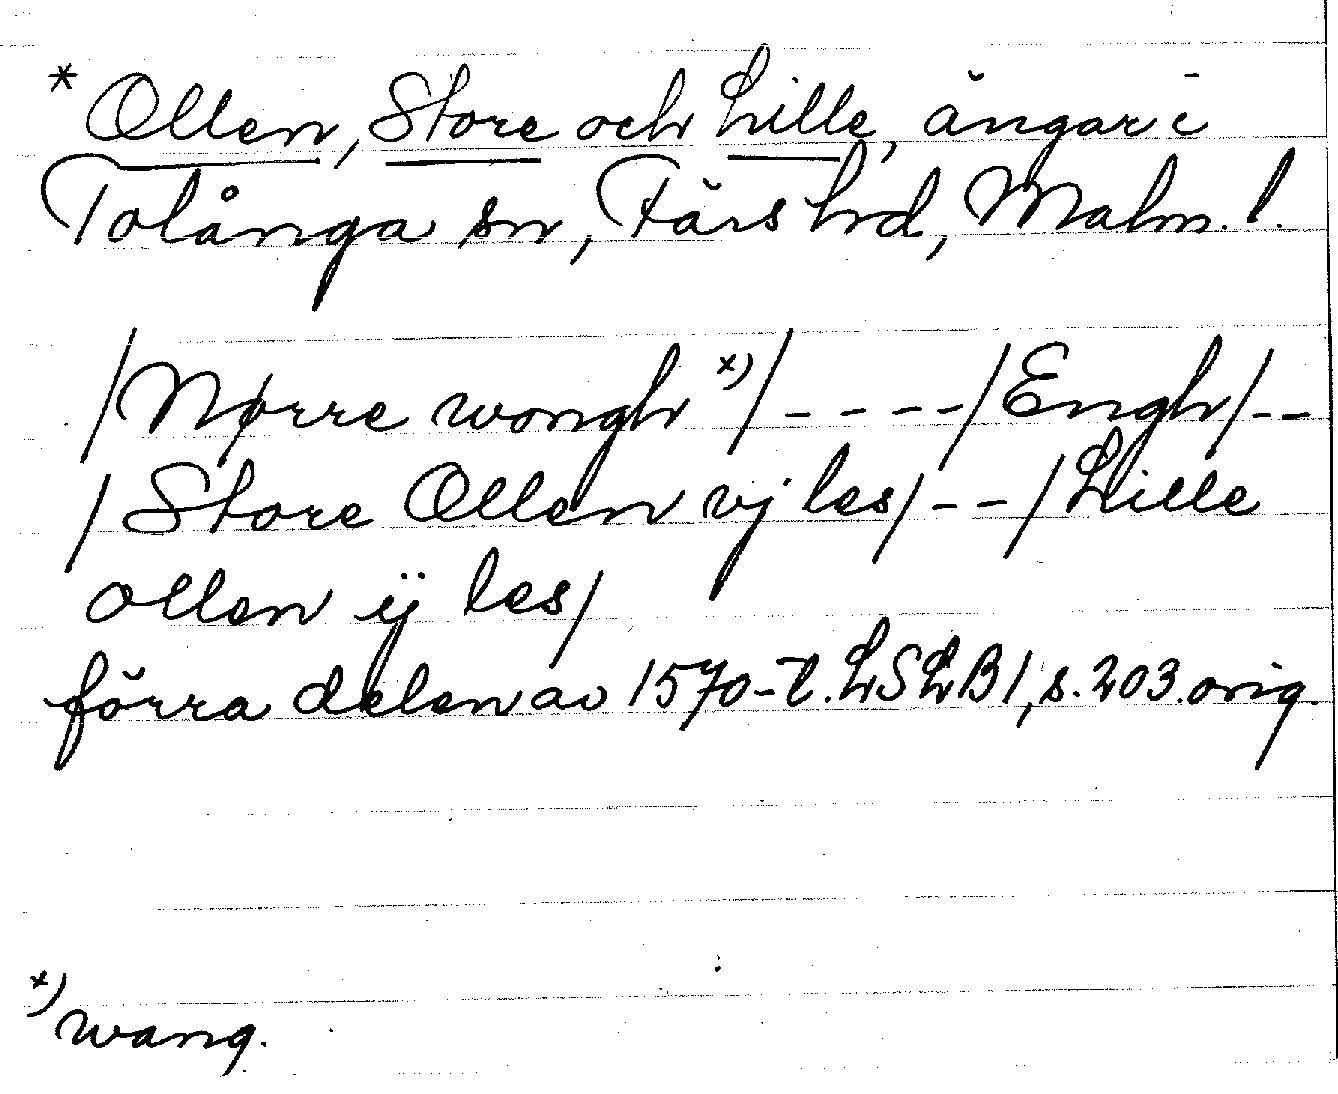 * Ollen, Store och Lille, ängar i
Tolånga sn, Färs hrd, Malm. l.
/Nørre wongh x)/ - - - - /Engh/ - -
/Store Ollen vj les/ - - /Lille
ollen ij les/
förra delen av 1570-t. LSLB1, s. 203. orig.
x) wang.